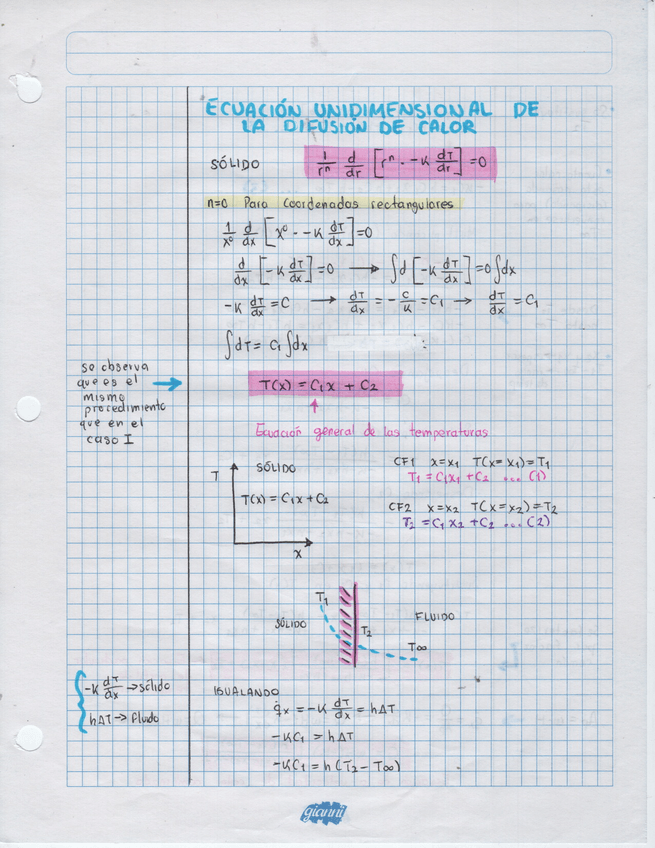 ECUACIÓN UNIDIMENSIONAL DE
LA DIFUSIÓN DE CALOR
SÓLIDO 1/rⁿ d/dr [rⁿ · -K dT/dr] = 0
n=0 Para coordenadas rectangulares
1/x⁰ d/dx [x⁰ · -K dT/dx] = 0
d/dx [-K dT/dx] = 0 → ∫d[-K dT/dx] = 0∫dx
-K dT/dx = C → dT/dx = -C/K = C₁ → dT/dx = C₁
∫dT = C₁∫dx
se observa
que es el
mismo
procedimiento
que en el
caso I
→ T(x) = C₁x + C₂
↑
Ecuación general de las temperaturas
T
SÓLIDO
T(x) = C₁x + C₂
x
CF1 x=x₁ T(x=x₁)=T₁
T₁ = C₁x₁ + C₂ ... (1)
CF2 x=x₂ T(x=x₂)=T₂
T₂ = C₁x₂ + C₂ ... (2)
T₁
SÓLIDO
T₂
FLUIDO
T∞
-K dT/dx → sólido
h∆T → fluido
IGUALANDO
q̇x = -K dT/dx = h∆T
-KC₁ = h∆T
-KC₁ = h(T₂ - T∞)
gianni